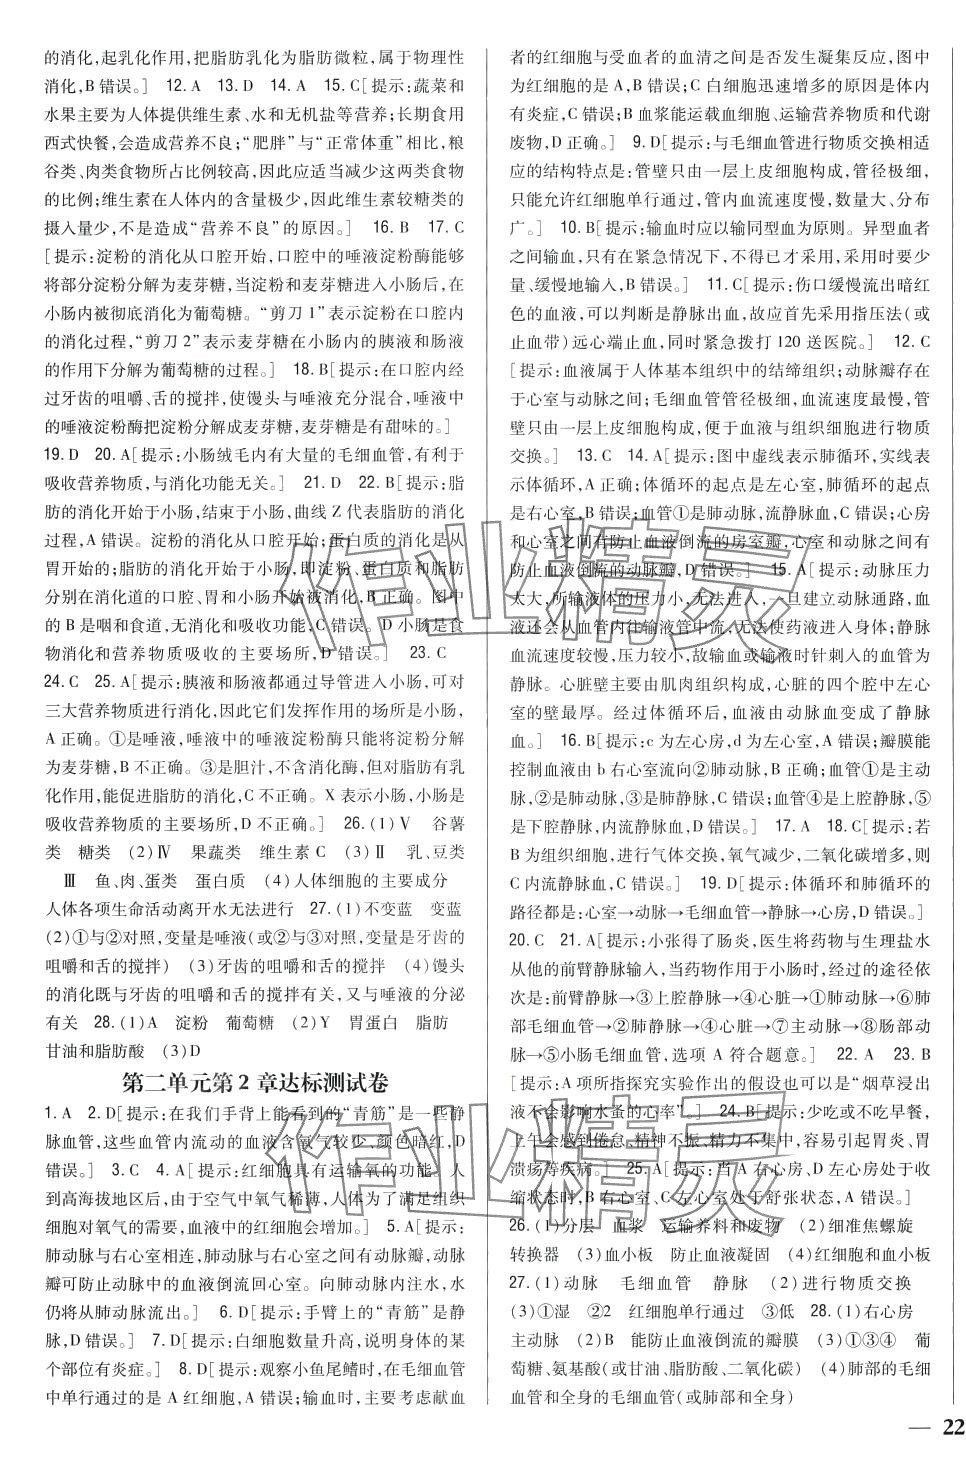 的消化,起乳化作用,把脂肪乳化为脂肪微粒,属于物理性
消化,B错误。] 12.A 13.D 14.A 15.C[提示:蔬菜和
水果主要为人体提供维生素、水和无机盐等营养;长期食用
西式快餐,会造成营养不良;“肥胖”与“正常体重”相比,粮
谷类、肉类食物所占比例较高,因此应适当减少这两类食物
的比例;维生素在人体内的含量极少,因此维生素较糖类的
摄入量少,不是造成“营养不良”的原因。] 16.B 17.C
[提示:淀粉的消化从口腔开始,口腔中的唾液淀粉酶能够
将部分淀粉分解为麦芽糖,当淀粉和麦芽糖进入小肠后,在
小肠内被彻底消化为葡萄糖。“剪刀1”表示淀粉在口腔内
的消化过程,“剪刀2”表示麦芽糖在小肠内的胰液和肠液
的作用下分解为葡萄糖的过程。] 18.B[提示:在口腔内经
过牙齿的咀嚼、舌的搅拌,使馒头与唾液充分混合,唾液中
的唾液淀粉酶把淀粉分解成麦芽糖,麦芽糖是有甜味的。]
19.D 20.A[提示:小肠绒毛内有大量的毛细血管,有利于
吸收营养物质,与消化功能无关。] 21.D 22.B[提示:脂
肪的消化开始于小肠,结束于小肠,曲线Z代表脂肪的消化
过程,A错误。淀粉的消化从口腔开始;蛋白质的消化是从
胃开始的;脂肪的消化开始于小肠,即淀粉、蛋白质和脂肪
分别在消化道的口腔、胃和小肠开始被消化,B正确。图中
的B是咽和食道,无消化和吸收功能,C错误。D小肠是食
物消化和营养物质吸收的主要场所,D错误。] 23.C
24.C 25.A[提示:胰液和肠液都通过导管进入小肠,可对
三大营养物质进行消化,因此它们发挥作用的场所是小肠,
A正确。①是唾液,唾液中的唾液淀粉酶只能将淀粉分解
为麦芽糖,B不正确。③是胆汁,不含消化酶,但对脂肪有乳
化作用,能促进脂肪的消化,C不正确。X表示小肠,小肠是
吸收营养物质的主要场所,D不正确。] 26.(1)Ⅴ 谷薯
类 糖类 (2)Ⅳ 果蔬类 维生素C (3)Ⅱ 乳、豆类
Ⅲ 鱼、肉、蛋类 蛋白质 (4)人体细胞的主要成分
人体各项生命活动离开水无法进行 27.(1)不变蓝 变蓝
(2)①与②对照,变量是唾液(或②与③对照,变量是牙齿的
咀嚼和舌的搅拌) (3)牙齿的咀嚼和舌的搅拌 (4)馒头
的消化既与牙齿的咀嚼和舌的搅拌有关,又与唾液的分泌
有关 28.(1)A 淀粉 葡萄糖 (2)Y 胃蛋白 脂肪
甘油和脂肪酸 (3)D
第二单元第2章达标测试卷
1.A 2.D[提示:在我们手背上能看到的“青筋”是一些静
脉血管,这些血管内流动的血液含氧气较少,颜色暗红,D
错误。] 3.C 4.A[提示:红细胞具有运输氧的功能。人
到高海拔地区后,由于空气中氧气稀薄,人体为了满足组织
细胞对氧气的需要,血液中的红细胞会增加。] 5.A[提示:
肺动脉与右心室相连,肺动脉与右心室之间有动脉瓣,动脉
瓣可防止动脉中的血液倒流回心室。向肺动脉内注水,水
仍将从肺动脉流出。] 6.D[提示:手臂上的“青筋”是静
脉,D错误。] 7.D[提示:白细胞数量升高,说明身体的某
个部位有炎症。] 8.D[提示:观察小鱼尾鳍时,在毛细血管
中单行通过的是A红细胞,A错误;输血时,主要考虑献血
者的红细胞与受血者的血清之间是否发生凝集反应,图中
为红细胞的是A,B错误;C白细胞迅速增多的原因是体内
有炎症,C错误;B血浆能运载血细胞、运输营养物质和代谢
废物,D正确。] 9.D[提示:与毛细血管进行物质交换相适
应的结构特点是:管壁只由一层上皮细胞构成,管径极细,
只能允许红细胞单行通过,管内血流速度慢,数量大、分布
广。] 10.B[提示:输血时应以输同型血为原则。异型血者
之间输血,只有在紧急情况下,不得已才采用,采用时要少
量、缓慢地输入,B错误。] 11.C[提示:伤口缓慢流出暗红
色的血液,可以判断是静脉出血,故应首先采用指压法(或
止血带)远心端止血,同时紧急拨打120送医院。] 12.C
[提示:血液属于人体基本组织中的结缔组织;动脉瓣存在
于心室与动脉之间;毛细血管管径极细,血流速度最慢,管
壁只由一层上皮细胞构成,便于血液与组织细胞进行物质
交换。] 13.C 14.A[提示:图中虚线表示肺循环,实线表
示体循环,A正确;体循环的起点是左心室,肺循环的起点
是右心室,B错误;血管①是肺动脉,流静脉血,C错误;心房
和心室之间有防止血液倒流的房室瓣,心室和动脉之间有
防止血液倒流的动脉瓣,D错误。] 15.A[提示:动脉压力
太大,所输液体的压力小,无法进入,一旦建立动脉通路,血
液还会从血管内往输液管中流,无法使药液进入身体;静脉
血流速度较慢,压力较小,故输血或输液时针刺入的血管为
静脉。心脏壁主要由肌肉组织构成,心脏的四个腔中左心
室的壁最厚。经过体循环后,血液由动脉血变成了静脉
血。] 16.B[提示:c为左心房,d为左心室,A错误;瓣膜能
控制血液由b右心室流向②肺动脉,B正确;血管①是主动
脉,②是肺动脉,③是肺静脉,C错误;血管④是上腔静脉,⑤
是下腔静脉,内流静脉血,D错误。] 17.A 18.C[提示:若
B为组织细胞,进行气体交换,氧气减少,二氧化碳增多,则
C内流静脉血,C错误。] 19.D[提示:体循环和肺循环的
路径都是:心室→动脉→毛细血管→静脉→心房,D错误。]
20.C 21.A[提示:小张得了肠炎,医生将药物与生理盐水
从他的前臂静脉输入,当药物作用于小肠时,经过的途径依
次是:前臂静脉→③上腔静脉→④心脏→①肺动脉→⑥肺
部毛细血管→②肺静脉→④心脏→⑦主动脉→⑧肠部动
脉→⑤小肠毛细血管,选项A符合题意。] 22.A 23.B
[提示:A项所指探究实验作出的假设也可以是“烟草浸出
液不会影响水蚤的心率”。] 24.B[提示:少吃或不吃早餐,
上午会感到倦怠、精神不振、精力不集中,容易引起胃炎、胃
溃疡等疾病。] 25.A[提示:当A右心房、D左心房处于收
缩状态时,B右心室、C左心室处于舒张状态,A错误。]
26.(1)分层 血浆 运输养料和废物 (2)细准焦螺旋
转换器 (3)血小板 防止血液凝固 (4)红细胞和血小板
27.(1)动脉 毛细血管 静脉 (2)进行物质交换
(3)①湿 ②2 红细胞单行通过 ③低 28.(1)右心房
主动脉 (2)B 能防止血液倒流的瓣膜 (3)①③④ 葡
萄糖、氨基酸(或甘油、脂肪酸、二氧化碳) (4)肺部的毛细
血管和全身的毛细血管(或肺部和全身)
— 22
作业精灵
作业精灵